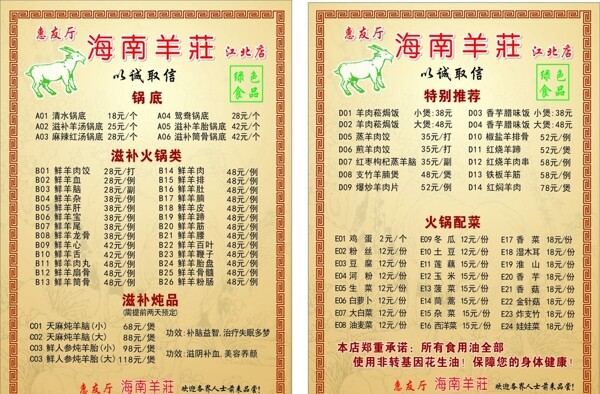 惠友厅 海南羊莊 江北店
以诚取信
绿色
食品
锅底
A01 清水锅底 18元/个 A04 鸳鸯锅底 28元/个
A02 滋补羊汤锅底 25元/个 A05 滋补羊胎锅底 42元/个
A03 麻辣红汤锅底 28元/个 A06 滋补筒骨锅底 42元/个
滋补火锅类
B01 鲜羊肉饺 28元/打 B14 鲜羊肉 48元/例
B02 鲜羊血 28元/例 B15 鲜羊排 48元/例
B03 鲜羊脑 28元/副 B16 鲜羊肚 48元/例
B04 鲜羊杂 38元/例 B17 鲜羊腩 48元/例
B05 鲜羊肝 38元/例 B18 鲜羊皮 48元/例
B06 鲜羊宝 38元/例 B19 鲜羊蹄 48元/例
B07 鲜羊尾 38元/例 B20 鲜羊筋 48元/例
B08 鲜龙骨 38元/例 B21 鲜羊腰 48元/例
B09 鲜羊心 42元/例 B22 鲜羊百叶 48元/例
B10 鲜羊舌 42元/例 B23 鲜羊鞭子 48元/例
B11 鲜羊肉丸 48元/例 B24 鲜羊胎盘 48元/例
B12 鲜扇骨 48元/例 B25 鲜羊骨髓 48元/例
B13 鲜筒骨 48元/例 B26 鲜羊粉肠 48元/例
滋补炖品
(需提前两天预定)
C01 天麻炖羊脑(小) 68元/煲
C02 天麻炖羊脑(大) 88元/煲
功效: 补脑益智, 治疗失眠多梦
C03 鲜人参炖羊胎(小) 98元/煲
C03 鲜人参炖羊胎(大) 118元/煲
功效: 滋阴补血, 美容养颜
惠友厅 海南羊莊 欢迎各界人士前来品尝!
惠友厅 海南羊莊 江北店
以诚取信
绿色
食品
特别推荐
D01 羊肉菘焗饭 小煲:38元 D03 香芋腊味饭 小煲38元
D02 羊肉菘焗饭 大煲:48元 D04 香芋腊味饭 大煲48元
D05 蒸羊肉饺 35元/打 D10 椒盐羊排骨 52元/例
D06 煎羊肉饺 35元/打 D11 红烧羊蹄 52元/煲
D07 红枣枸杞蒸羊脑 35元/副 D12 红烧羊肉串 58元/例
D08 支竹羊腩煲 48元/煲 D13 铁板羊筋 58元/例
D09 爆炒羊肉片 52元/例 D14 红焖羊肉 78元/煲
火锅配菜
E01 鸡蛋 2元/个 E09 冬瓜 12元/份 E17 香菜 18元/份
E02 粉丝 12元/份 E10 土豆 12元/份 E18 湿木耳 18元/份
E03 豆腐 12元/份 E11 莲藕 15元/份 E19 淮山 18元/份
E04 河粉 12元/份 E12 玉米 15元/份 E20 香芋 18元/份
E05 生菜 12元/份 E13 菠菜 15元/份 E21 香菇 18元/份
E06 白萝卜 12元/份 E14 茼蒿 15元/份 E22 金针菇 18元/份
E07 大白菜 12元/份 E15 杂菌 15元/份 E23 炸支竹 18元/份
E08 油麦菜 12元/份 E16 西洋菜 15元/份 E24 娃娃菜 18元/份
本店郑重承诺: 所有食用油全部
使用非转基因花生油! 保障您的身体健康!
惠友厅 海南羊莊 欢迎各界人士前来品尝!